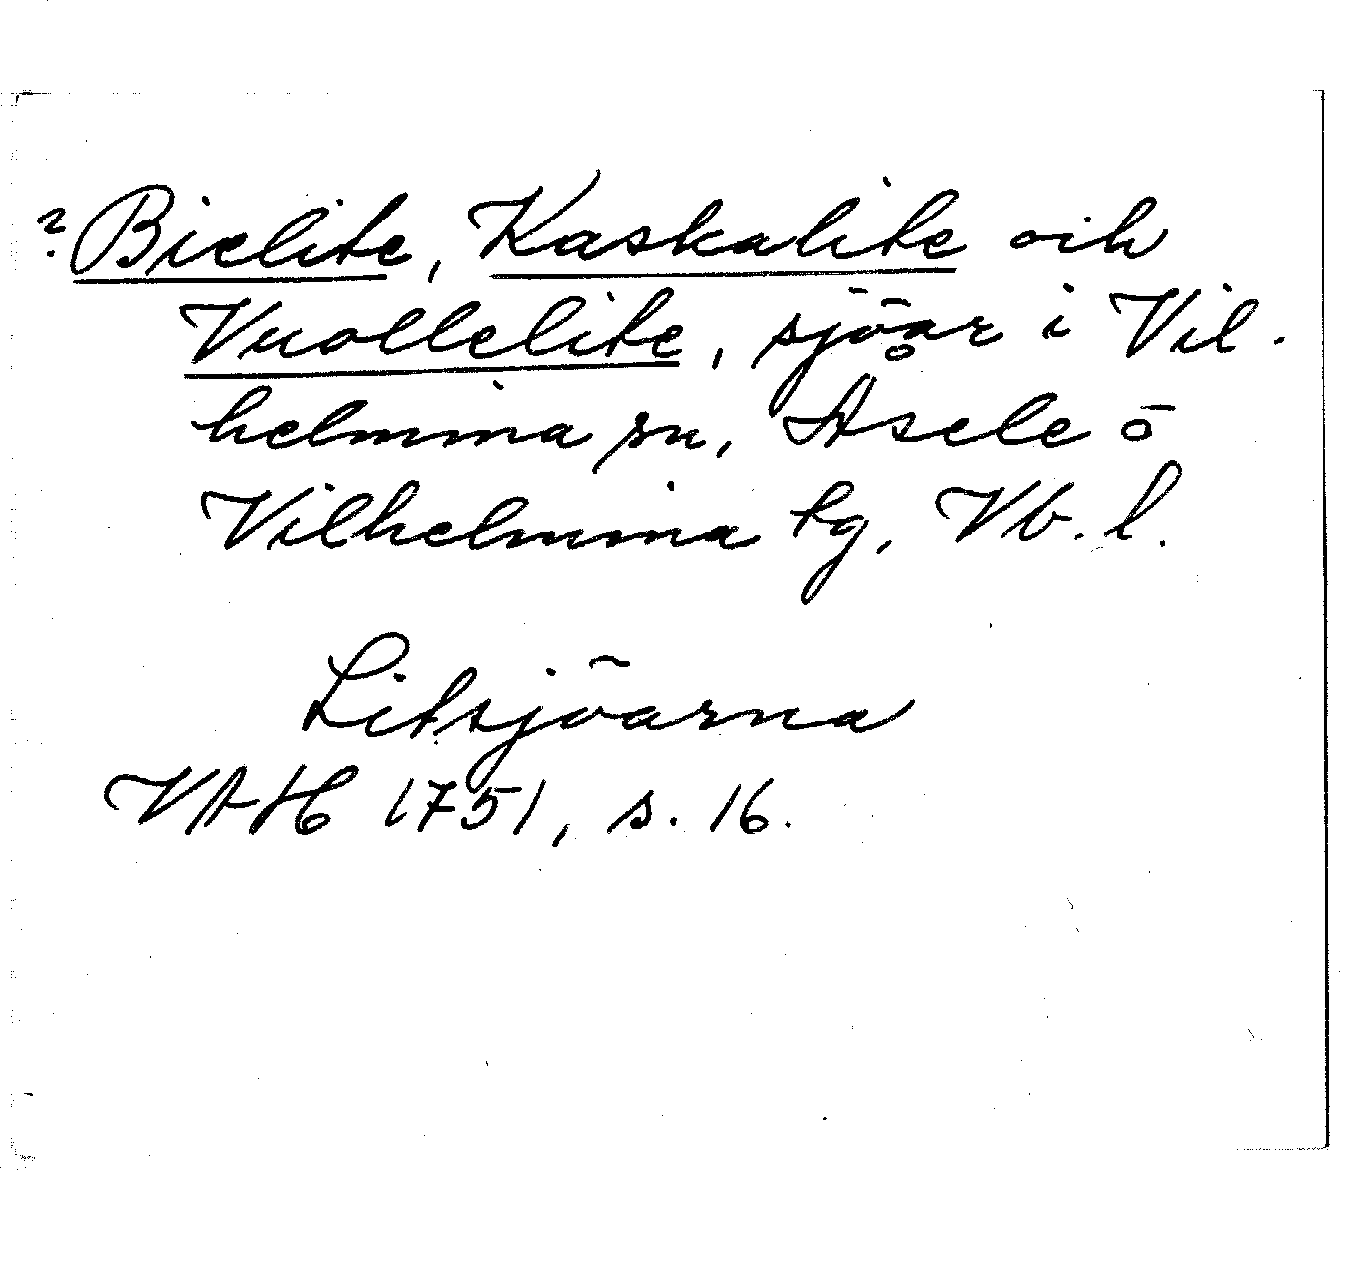 ? Bielite, Kaskalite och
Vuollelite, sjöar i Vil-
helmina sn, Åsele o
Vilhelmina tg, Vb. l.
Litsjöarna
VAH 1751, s. 16.